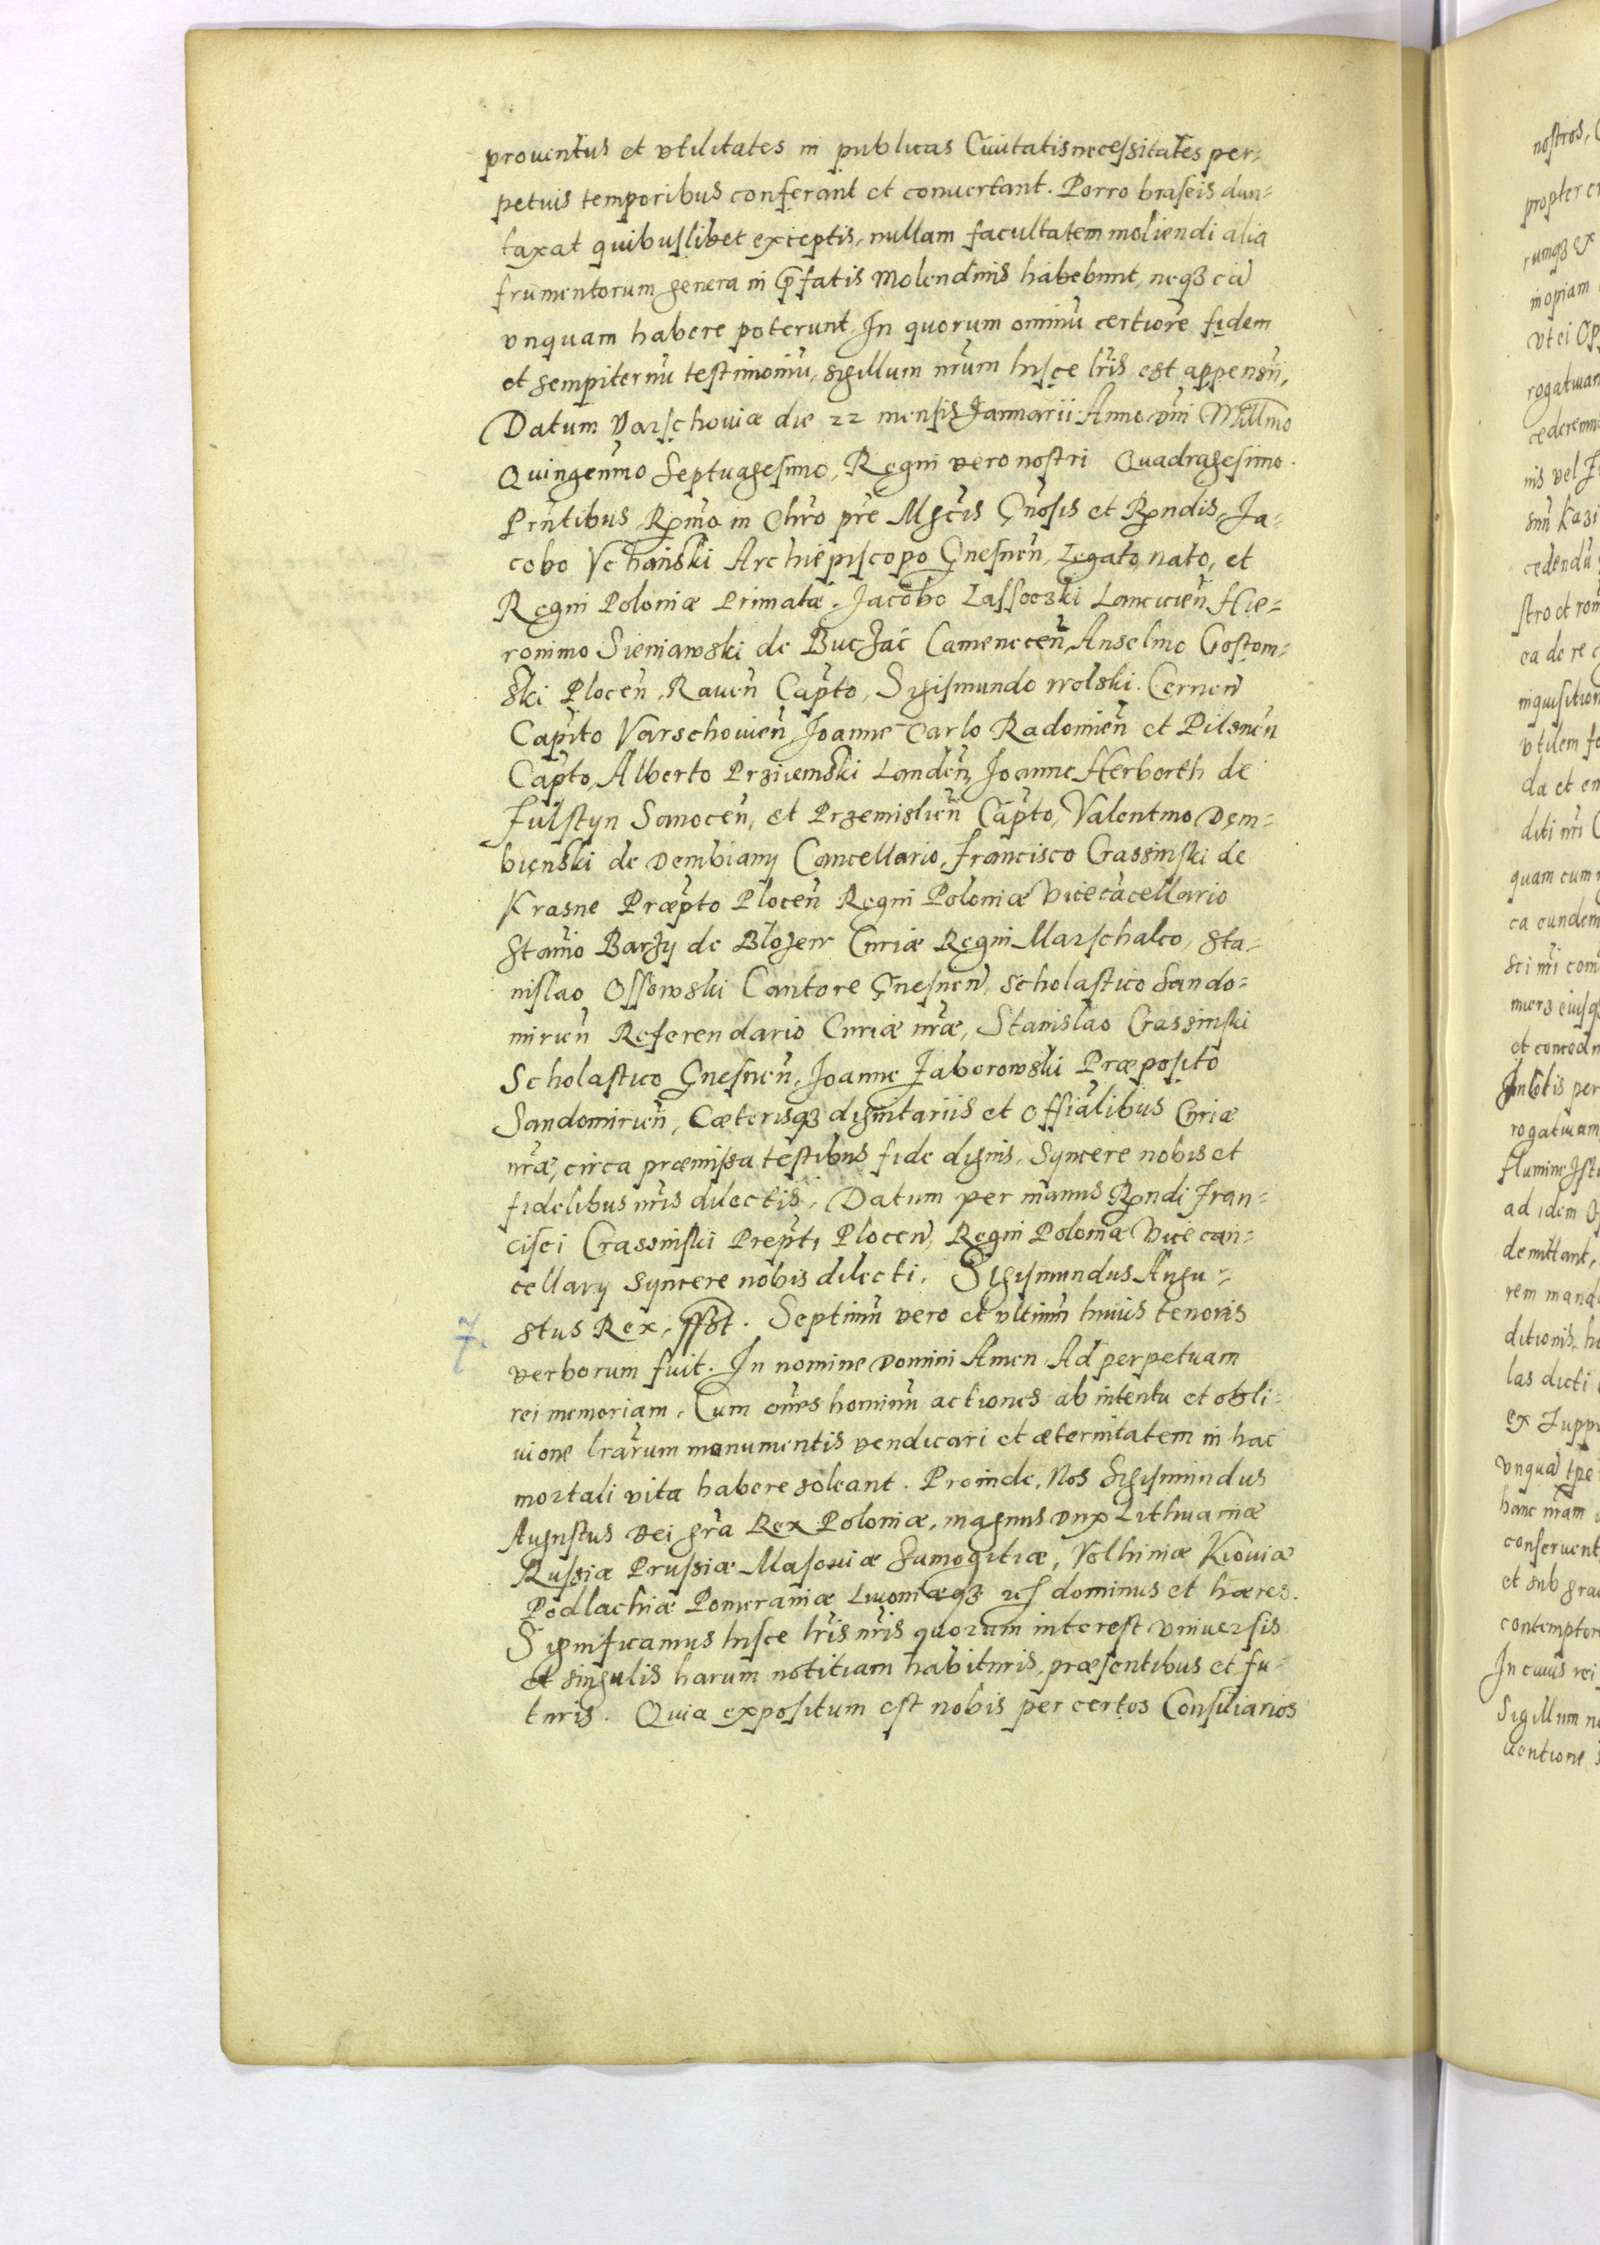 prouentus et vtilitates in publicas Ciuitatis necessitates per-
petuis temporibus conferant et conuertant. Porro braseis dun-
taxat quibuslibet exceptis, nullam facultatem moliendi alia
frumentorum genera in p̃fatis Molendinis habebunt, neq3 eā
vnquam habere poterunt. In quorum ominū certiorē fidem
et sempiternū testimoniū, sigillum nr̃um hisce lr̃is est appensū,
Datum Varschouiæ die 22 mensis Januarii Anno Dñi Mill̃mo
Quingen̄mo Septuagesimo, Regni vero nostri Quadragesimo.
Prñtibus Rmõ in Chrõ prẽ Mgcĩs Gñosis et Rñdis, Ja-
cobo Vchański Archiepiscopo Gnesneñ, Legato nato, et
Regni Poloniæ Primatæ. Jacobo Lassoczki Lancicieñ Hie-
ronimo Sieniawski de Buczac Cameneceñ, Anselmo Gostom-
ski Ploceñ, Raueñ Capt̃o, Sigismundo wolski. Cerneñ
Capit̃o Varschouieñ Joanne Carlo Radomieñ et Pilsneñ
Capt̃o, Alberto Przijemski Landeñ, Joanne Herborth de
Fulstyn Sanoceñ, et Przemislieñ Capt̃o, Valentino Dem-
bięnski de Dembiany Cancellario, Francisco Crassinski de
Krasne Præpt̃o Ploceñ Regni Poloniæ Vicecācellario
Stanĩo Barzy de Blozew Curiæ Regni Marschalco, Sta-
nislao Ossowski Cantore Gnesneñ, Scholastico Sando-
mirieñ Referendario Curiæ nr̃æ, Stanislao Crassinski
Scholastico Gnesneñ, Joanne Zaborowski Præposito
Sandomirieñ, Cæterisq3 dignitariis et Offialibus Curiæ
nr̃æ, circa præmissa testibus fide dignis, Syncere nobis et
fidelibus nr̃is dilectis. Datum per manus Rñdi Fran-
cisci Crassinski Prepti Ploceñ, Regni Poloniæ Vicecan-
cellarij Syncere nobis dilecti. Sigismundus Augu-
stus Rex, sst. Septimū vero et vltimū huius tenoris
7.
verborum fuit. In nomine Domini Amen Ad perpetuam
rei memoriam. Cum om̃es hominū actiones ab intentu et obli-
uione lr̃arum monumentis vendicari et æternitatem in hac
mortali vita habere soleant. Proinde, Nos Sigismundus
Augustus Dei gr̃a Rex Poloniæ, magnus Dux Lithuaniæ
Russiæ Prussiæ Masouiæ Samogitiæ, Volhiniæ Kiouiæ
Podlachiæ Pomeraniæ Liuoniæq3 dominus et hæres.
Significamus hisce lr̃is nr̃is quorum interest Vniuersis
et singulis harum notitiam habituris, præsentibus et fu-
turis. Quia expositum est nobis per certos Consiliarios